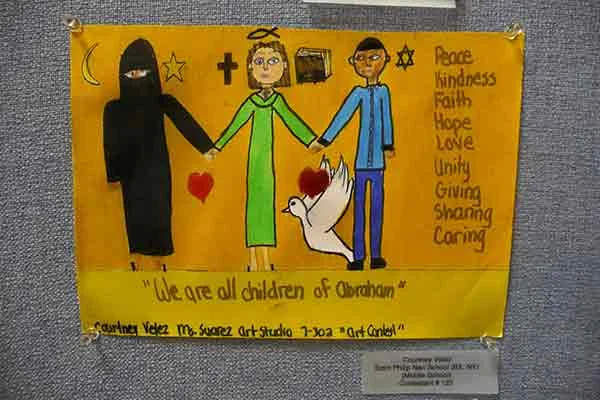 Peace
Kindness
Faith
Hope
Love
Unity
Giving
Sharing
Caring
"We are all children of abraham"
Courtney Velez Ms. Suarez art Studio 7-302 "art Contest"
Courtney Velez
Saint Philip Neri School BX, NY
(Middle School)
Contestant # 123